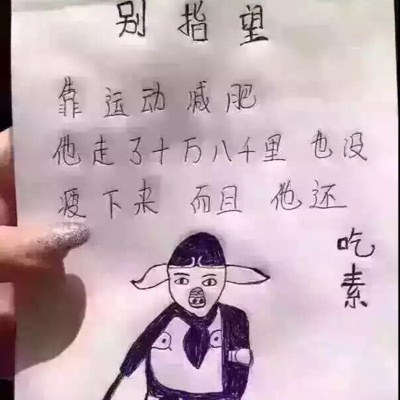 别指望
靠运动减肥
他走了十万八千里也没
瘦下来而且他还
吃素